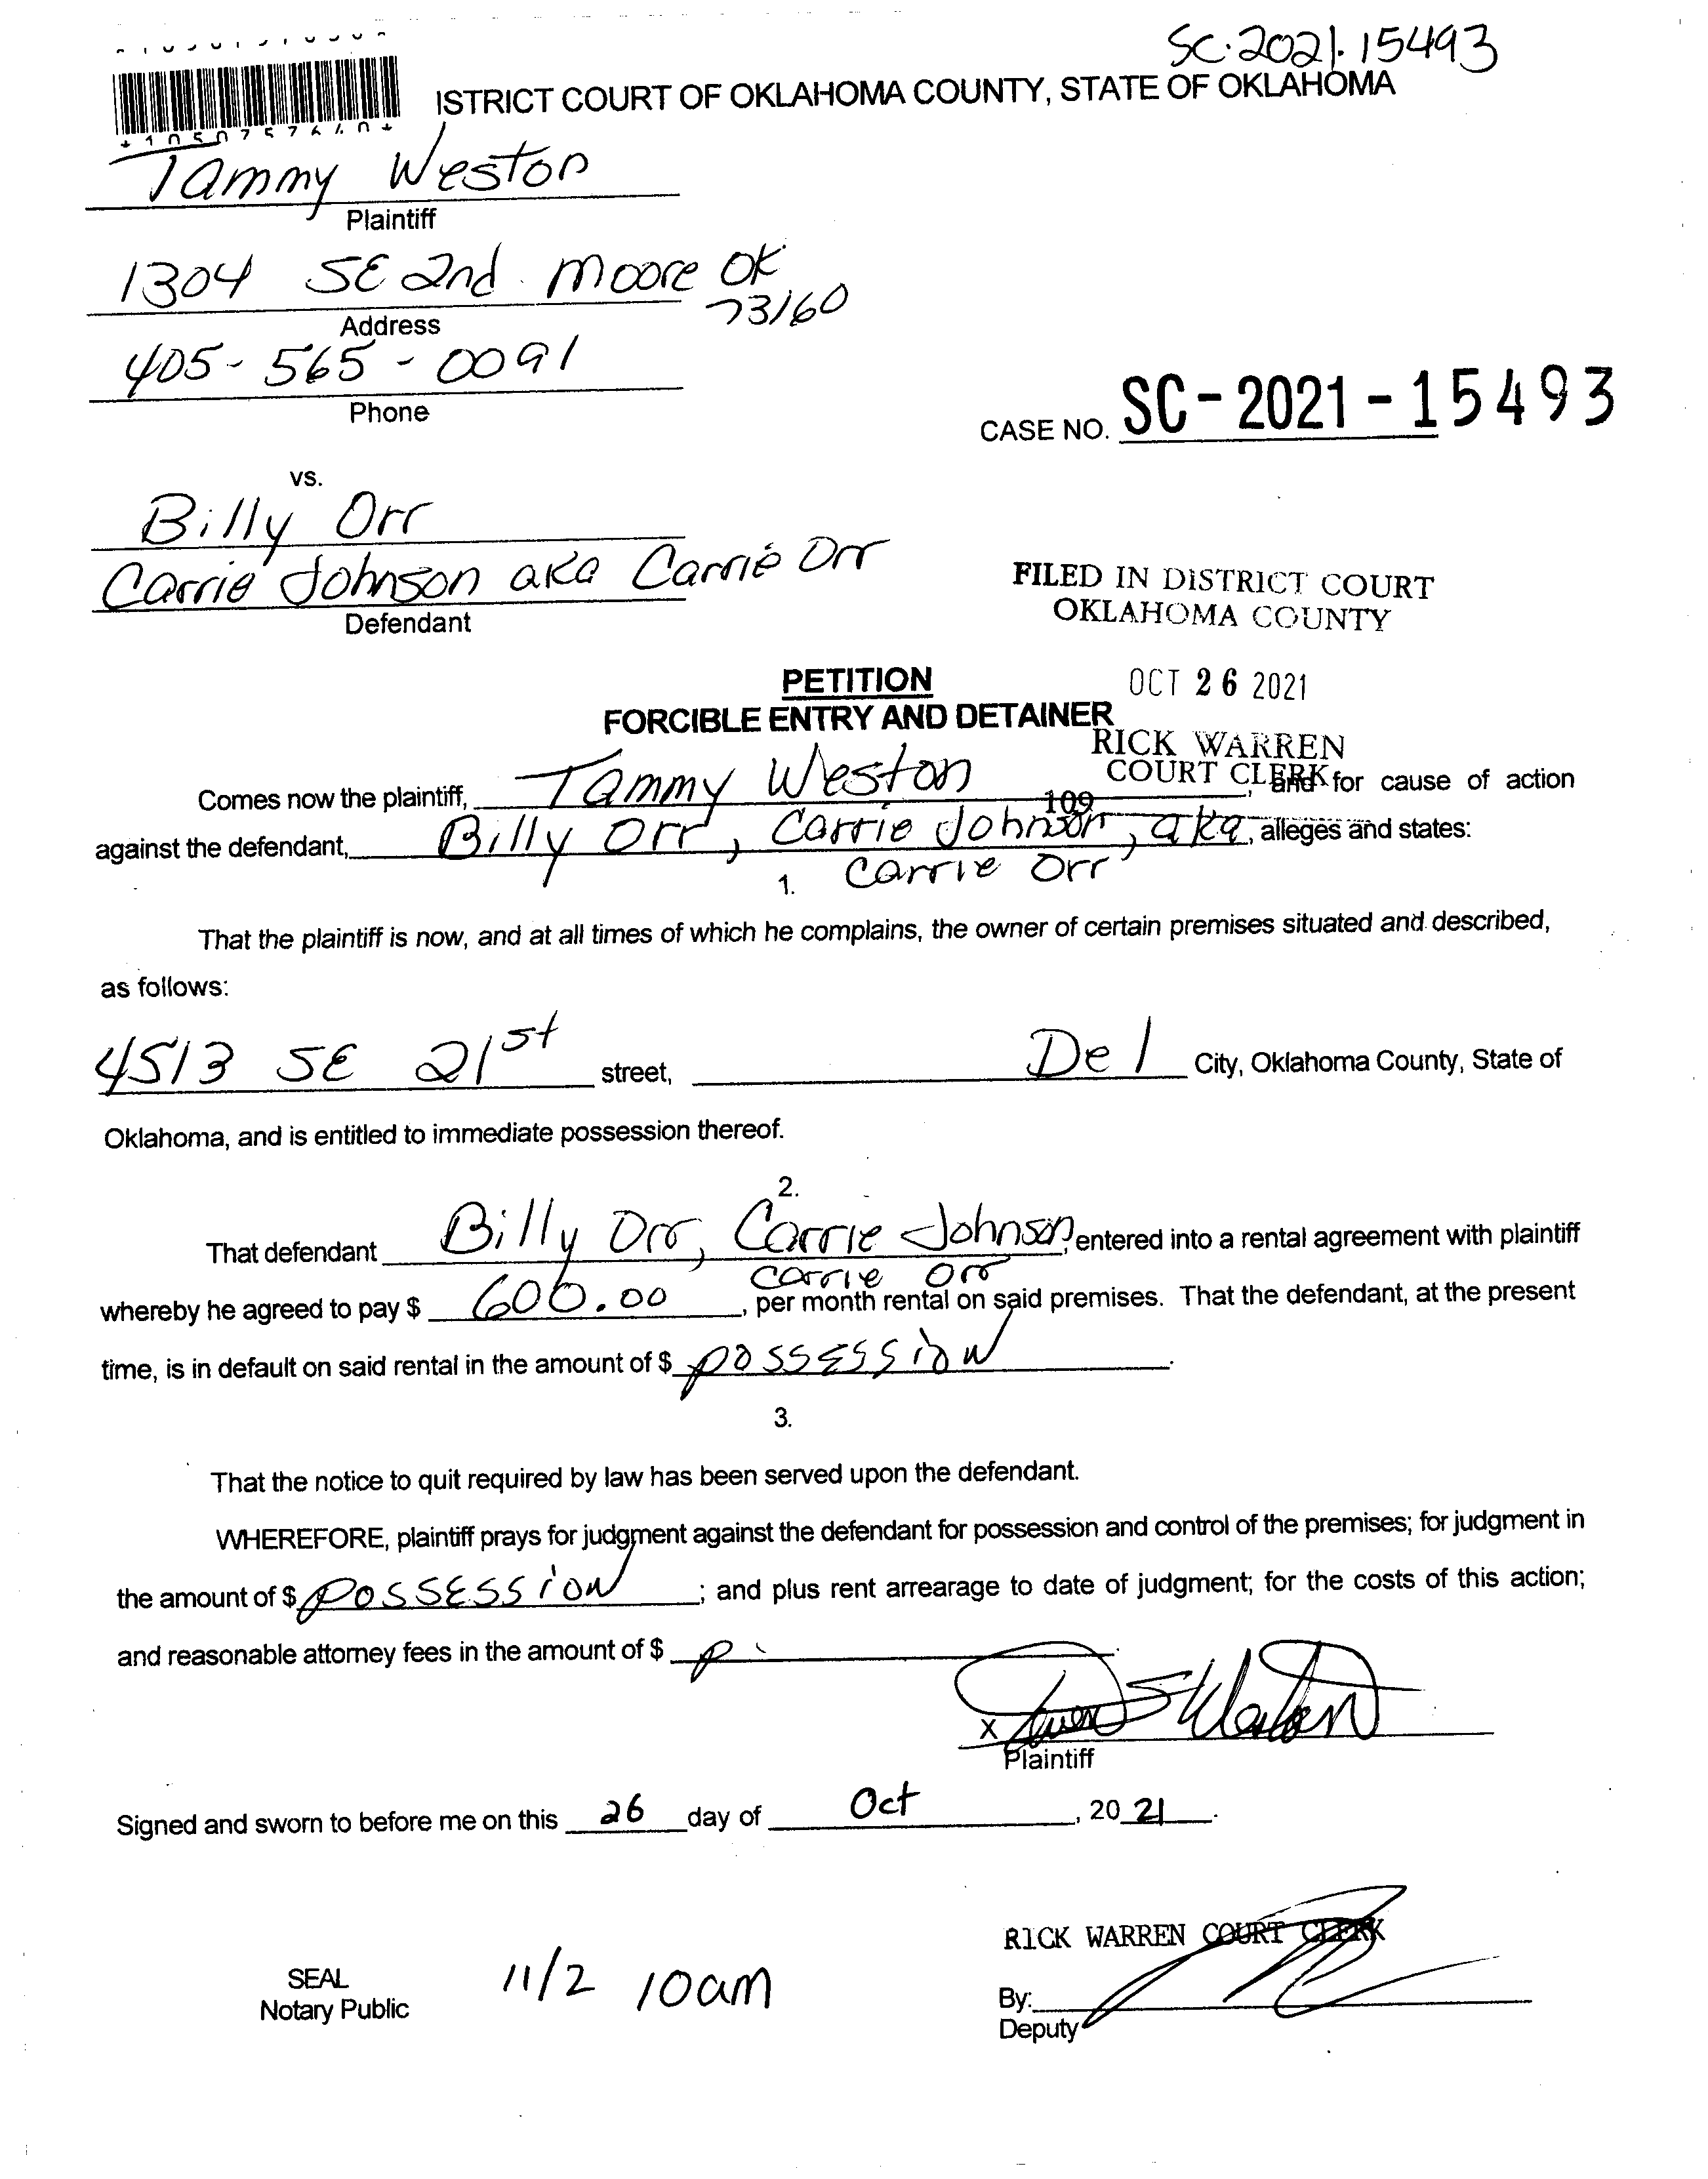 SC-2021-15493
ISTRICT COURT OF OKLAHOMA COUNTY, STATE OF OKLAHOMA
Tammy Weston
Plaintiff
1304 SE 2nd Moore OK
73160
Address
405-565-0091
Phone
CASE NO. SC-2021-15493
vs.
Billy Orr
Carrie Johnson aka Carrie Orr
Defendant
FILED IN DISTRICT COURT
OKLAHOMA COUNTY
PETITION
OCT 26 2021
FORCIBLE ENTRY AND DETAINER
RICK WARREN
COURT CLERK
Comes now the plaintiff, Tammy Weston, and for cause of action
109
against the defendant, Billy Orr, Carrie Johnson, aka, alleges and states:
1. Carrie Orr
That the plaintiff is now, and at all times of which he complains, the owner of certain premises situated and described,
as follows:
4513 SE 21st street, Del City, Oklahoma County, State of
Oklahoma, and is entitled to immediate possession thereof.
2.
That defendant Billy Orr, Carrie Johnson, entered into a rental agreement with plaintiff
Carrie Orr
whereby he agreed to pay $ 600.00, per month rental on said premises. That the defendant, at the present
time, is in default on said rental in the amount of $ possession.
3.
That the notice to quit required by law has been served upon the defendant.
WHEREFORE, plaintiff prays for judgment against the defendant for possession and control of the premises; for judgment in
the amount of $ possession; and plus rent arrearage to date of judgment; for the costs of this action;
and reasonable attorney fees in the amount of $
X
Plaintiff
Signed and sworn to before me on this 26 day of Oct, 20 21.
RICK WARREN COURT CLERK
SEAL
Notary Public
11/2 10am
By:
Deputy